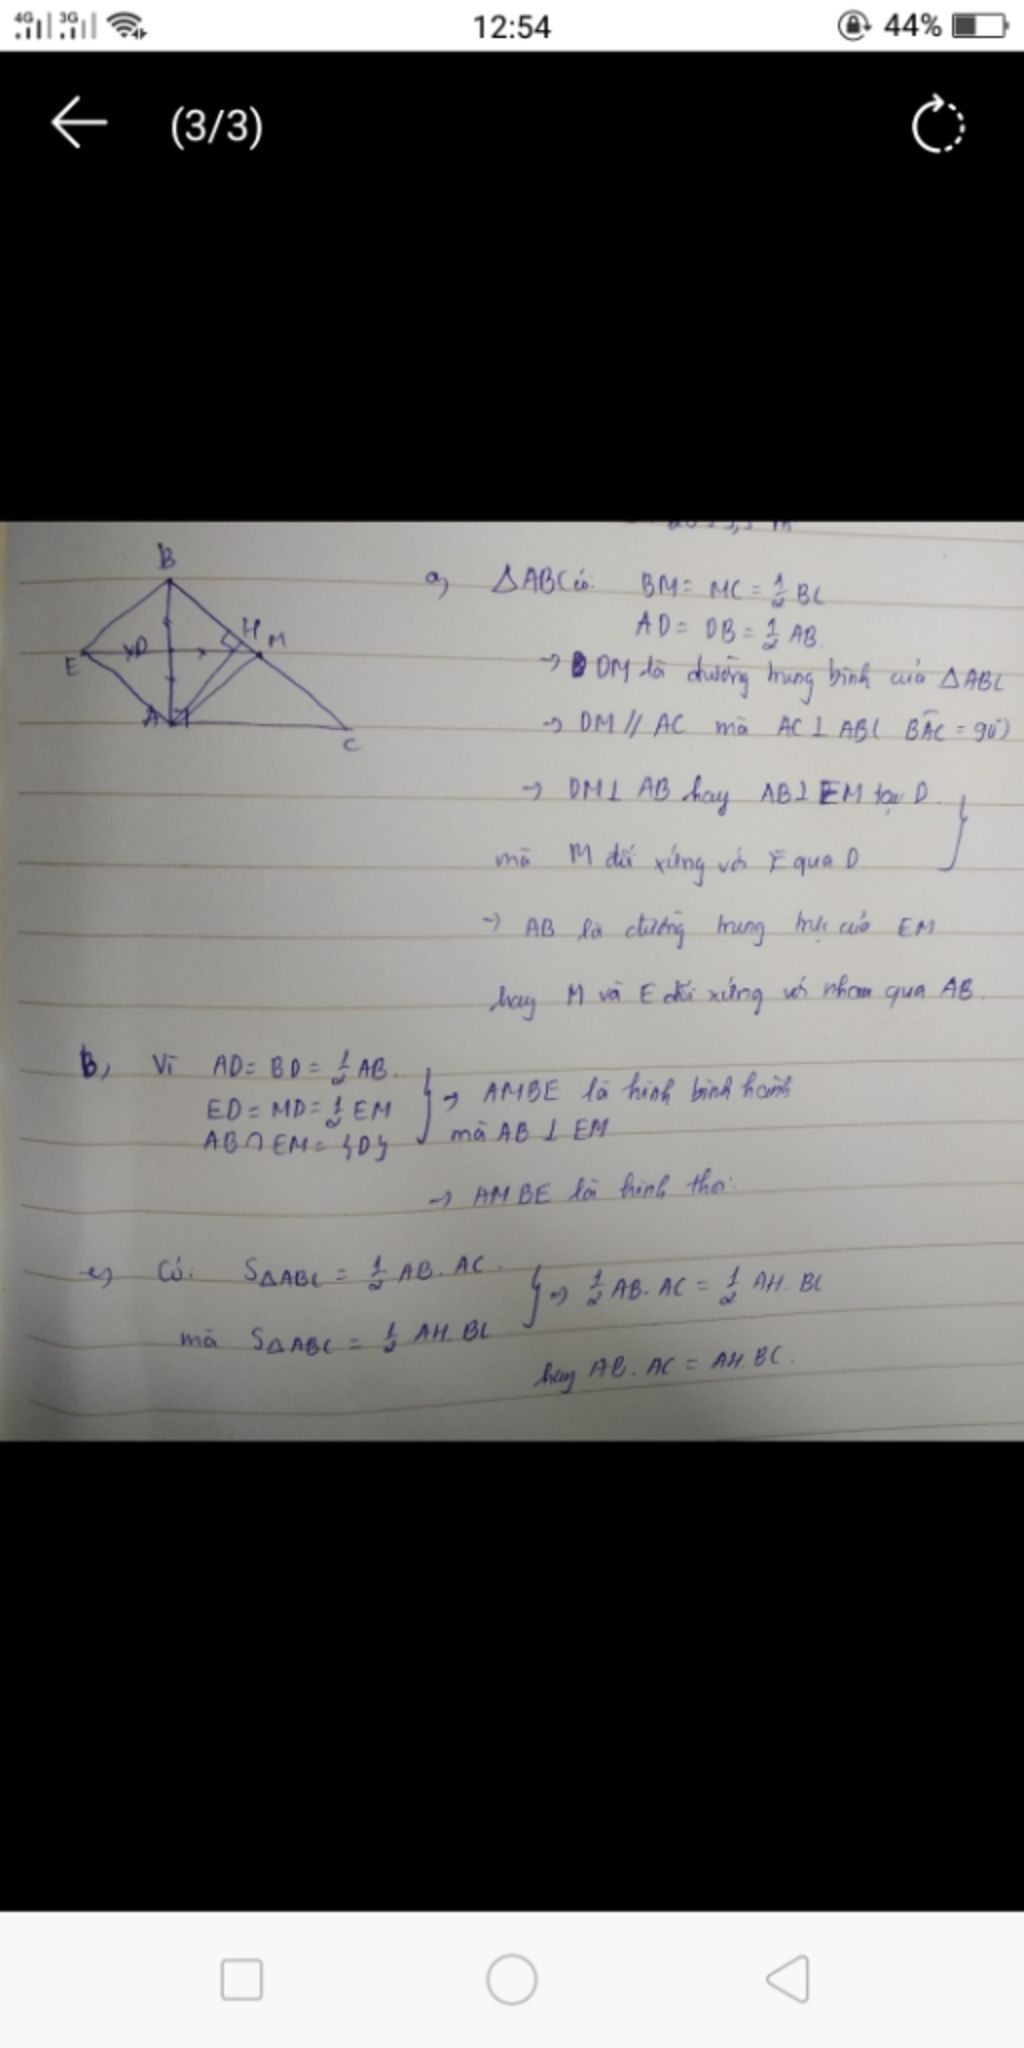 4G 3G 12:54 44%
(3/3)
B
H
M
D
E
A
C
a) ΔABC có: BM = MC = 1/2 BC
AD = DB = 1/2 AB.
→ DM là đường trung bình của ΔABC
→ DM // AC mà AC ⊥ AB ( BAC = 90°)
→ DM ⊥ AB hay AB ⊥ EM tại D.
mà M đối xứng với E qua D
→ AB là đường trung trực của EM
hay M và E đối xứng với nhau qua AB.
B, Vì AD = BD = 1/2 AB.
ED = MD = 1/2 EM
AB ∩ EM = {D}
→ AMBE là hình bình hành
mà AB ⊥ EM
→ AMBE là hình thoi.
c) Có: SΔABC = 1/2 AB. AC.
mà SΔABC = 1/2 AH. BC
=> 1/2 AB. AC = 1/2 AH. BC
hay AB. AC = AH. BC.